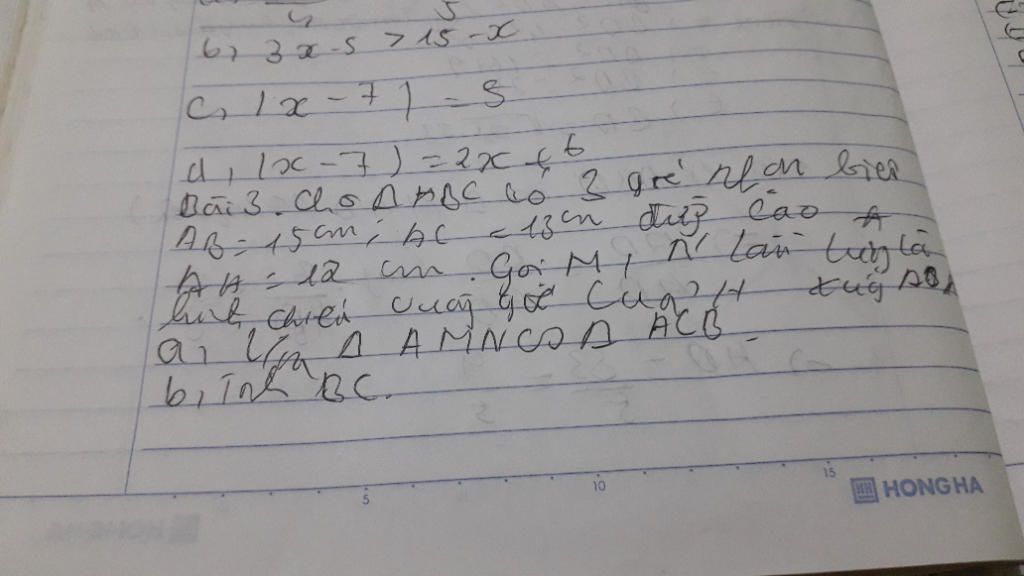 4 5
b, 3x-5 > 15-x
c, |x-7| = 5
d, |x-7| = 2x+6
Bài 3. Cho Δ ABC có 3 góc nhọn biết
AB = 15 cm; AC = 13 cm đường cao
AH = 12 cm. Gọi M, N lần lượt là
hình chiếu vuông góc của H
a, Δ AMN Δ ACB
b, Tính BC.
5 10 15
HONG HA